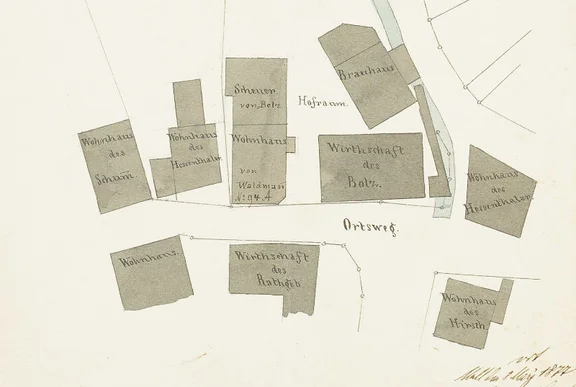 Scheuer
von Bolz
Brauhaus
Hofraum.
Wohnhaus
des
Schum
Wohnhaus
des
Hesenthaler
Wohnhaus
von
Waldman
Wirthschaft
des
Bolz.
Wohnhaus
des
Hesenthaler
Ortsweg.
Wohnhaus.
Wirthschaft
des
Rathgeb
Wohnhaus
des
Hirsch
1877